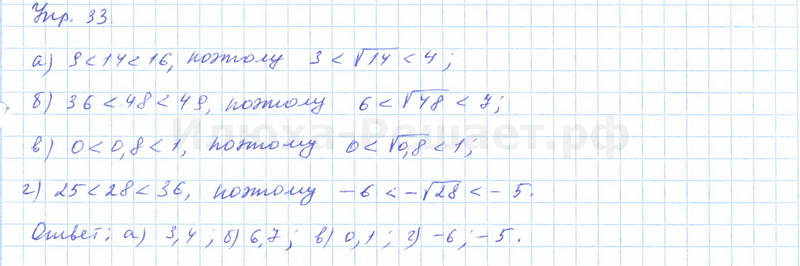 Упр. 33.
а) 9 < 14 < 16, поэтому 3 < √14 < 4;
б) 36 < 48 < 49, поэтому 6 < √48 < 7;
Илюха-Решает.рф
в) 0 < 0,8 < 1, поэтому 0 < √0,8 < 1;
г) 25 < 28 < 36, поэтому -6 < -√28 < -5.
Ответ: а) 3,4; б) 6,7; в) 0,1; г) -6; -5.